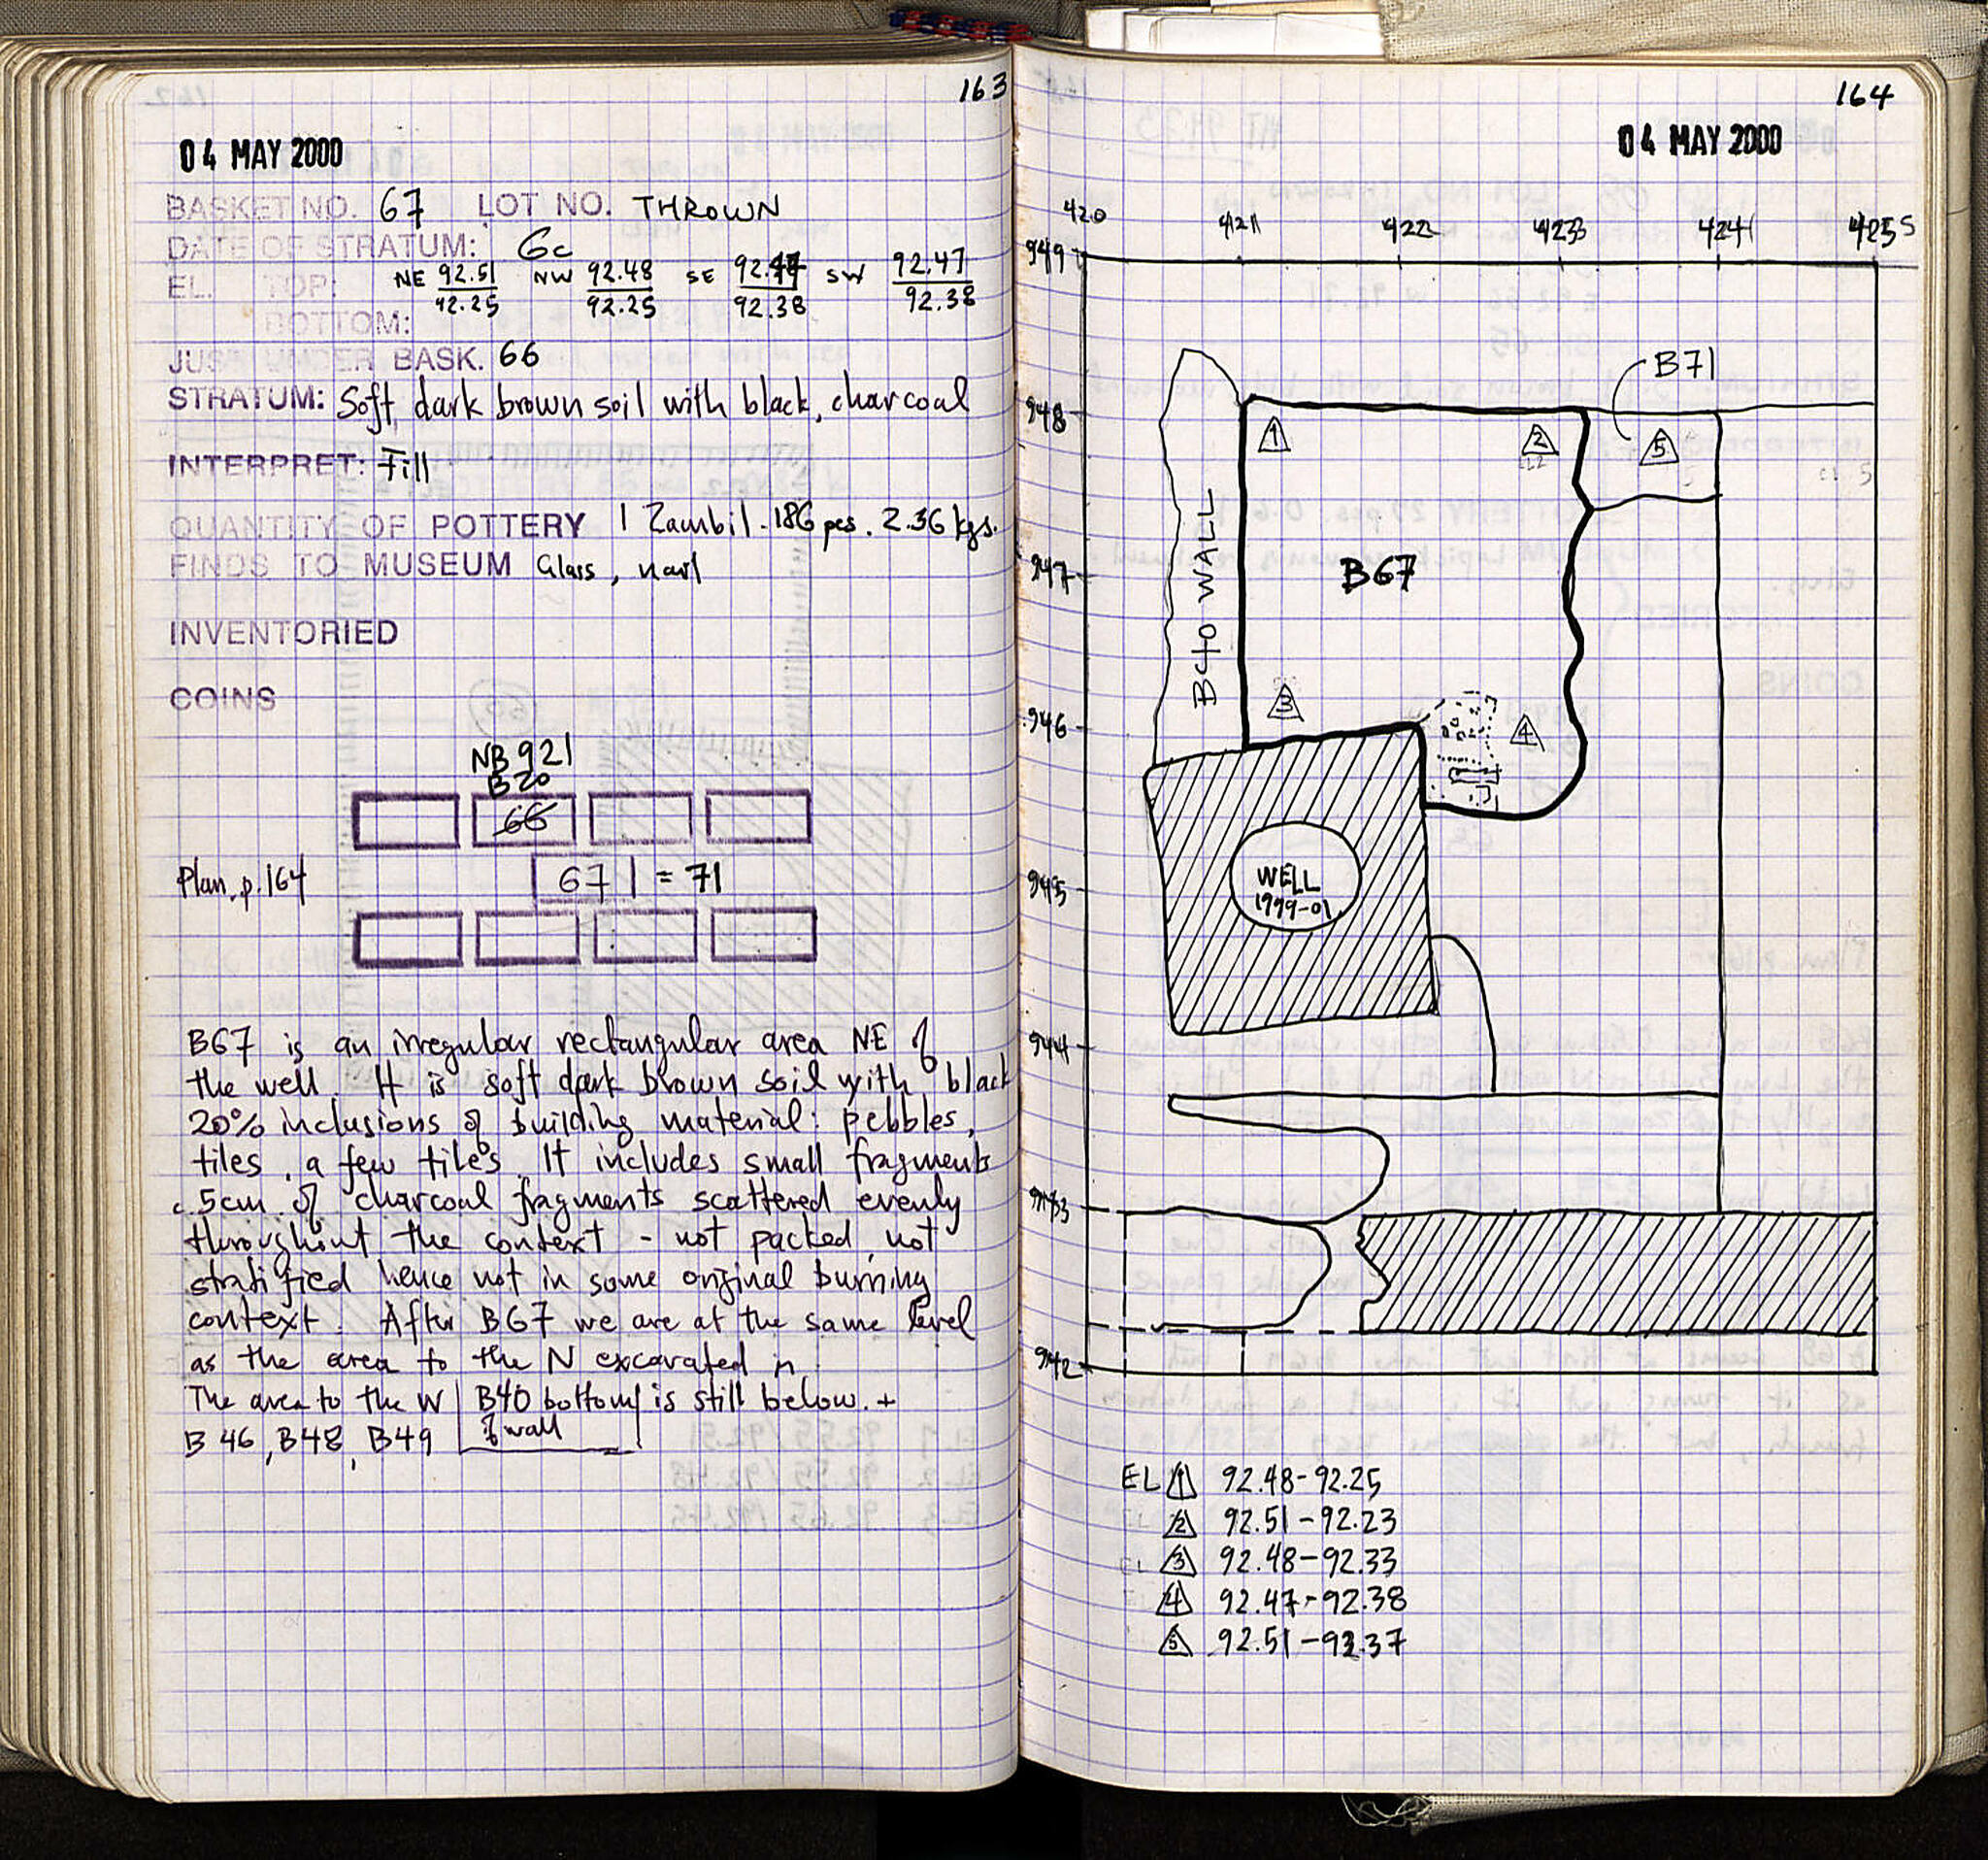 163
04 MAY 2000
BASKET NO. 67 LOT NO. THROWN
DATE OF STRATUM: 6c
EL. TOP: NE 92.51 NW 92.48 SE 92.47 SW 92.47
92.25 92.25 92.38 92.38
BOTTOM:
JUST UNDER BASK. 66
STRATUM: Soft, dark brown soil with black, charcoal
INTERPRET: Fill
QUANTITY OF POTTERY 1 Zambil. 186 pcs. 2.36 kgs.
FINDS TO MUSEUM Glass, nail
INVENTORIED
COINS
NB 921
B20
66
Plan p. 164
67 = 71
B67 is an irregular rectangular area NE of
the well. It is soft dark brown soil with black
20% inclusions of building material: pebbles,
tiles, a few tiles. It includes small fragments
c. 5cm of charcoal fragments scattered evenly
throughout the context - not packed, not
stratified hence not in some original burning
context. After B67 we are at the same level
as the area to the N excavated in
The area to the W B40 bottom is still below. +
B46, B48, B49 of wall
164
04 MAY 2000
420 421 422 423 424 425 S
949
B71
948
1 2 5
B40 WALL
947
B67
3
946
4
945
WELL
1999-01
944
943
942
EL 1 92.48-92.25
2 92.51-92.23
3 92.48-92.33
4 92.47-92.38
5 92.51-92.37